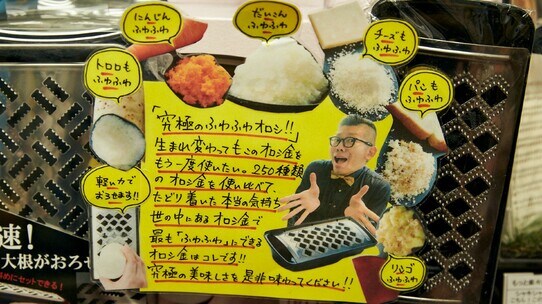 にんじん
ふわふわ
だいこん
ふわふわ
チーズも
ふわふわ
トロロも
ふわふわ
パンも
ふわふわ
軽い力で
おろせます!!
リンゴ
ふわふわ
「究極のふわふわオロシ!!」
生まれ変わってもこのオロシ金を
もう一度使いたい。250種類
のオロシ金を使い比べて、
たどり着いた本当の気持ち
世の中にあるオロシ金で
最も「ふわふわ」にできる
オロシ金はコレです!!
究極の美味しさを是非味わってください!!
速!
大根がおろせ
めにセットできる!